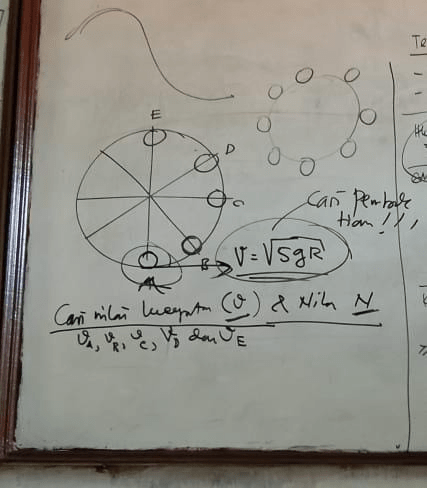 E
D
C
B
A
V = √5gR
Cari Pembuk
tian!!!,
Cari nilai kecepatan (v) & Nilai N
v_A, v_B, v_C, v_D dan v_E
Te
-
-